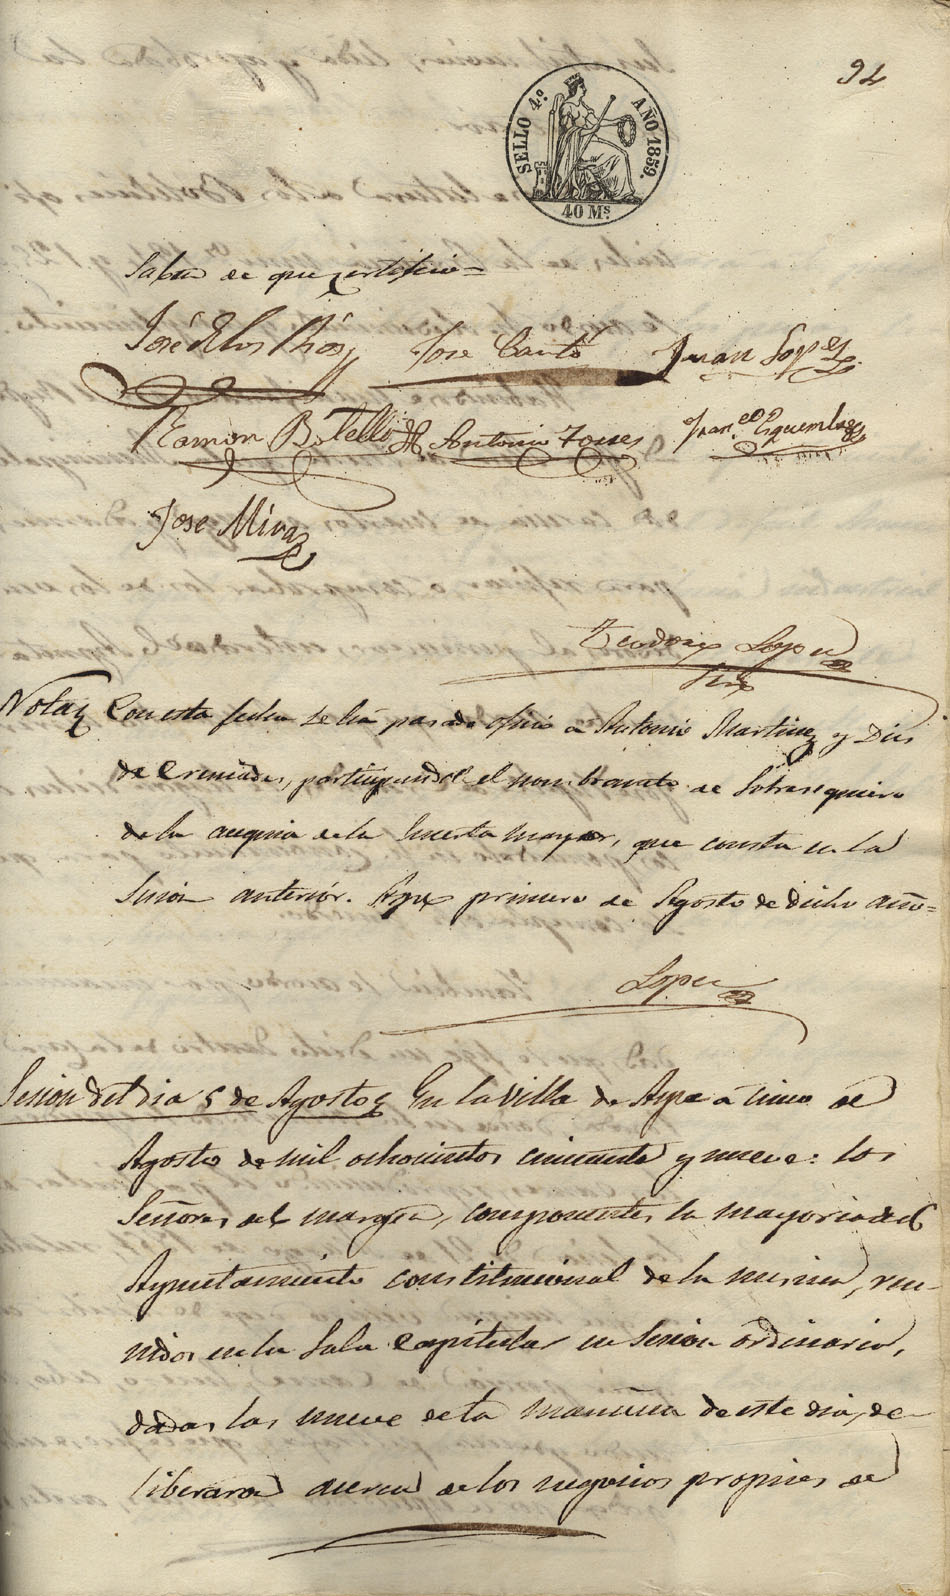 94
SELLO 4.º AÑO 1859.
40 Ms.
Saben de que certifico=
José de los Ríos
Jose Cantó
Juan Lopez
Ramon Botella
Antonio Torres
Fran.co Esquembre
Jose Mira
Teodoro Lopez
Srio
Nota Con esta fecha se ha pasado oficio a Antonio Martinez y Dies
de Cremades, participandole el nombramto. de Sobresequiero
de la acequia de la huerta mayor, que consta en la
Sesion anterior. Aspe primero de Agosto de dicho año=
Lopez
Sesion del dia 5 de Agosto En la villa de Aspe a cinco de
Agosto de mil ochocientos cincuenta y nueve: los
Señores del margen, componentes la mayoria del
Ayuntamiento constitucional de la misma, reu-
nidos en la Sala Capitular en Sesion ordinaria,
dadas las nueve de la mañana de este dia, de-
liberaron acerca de los negocios propios de